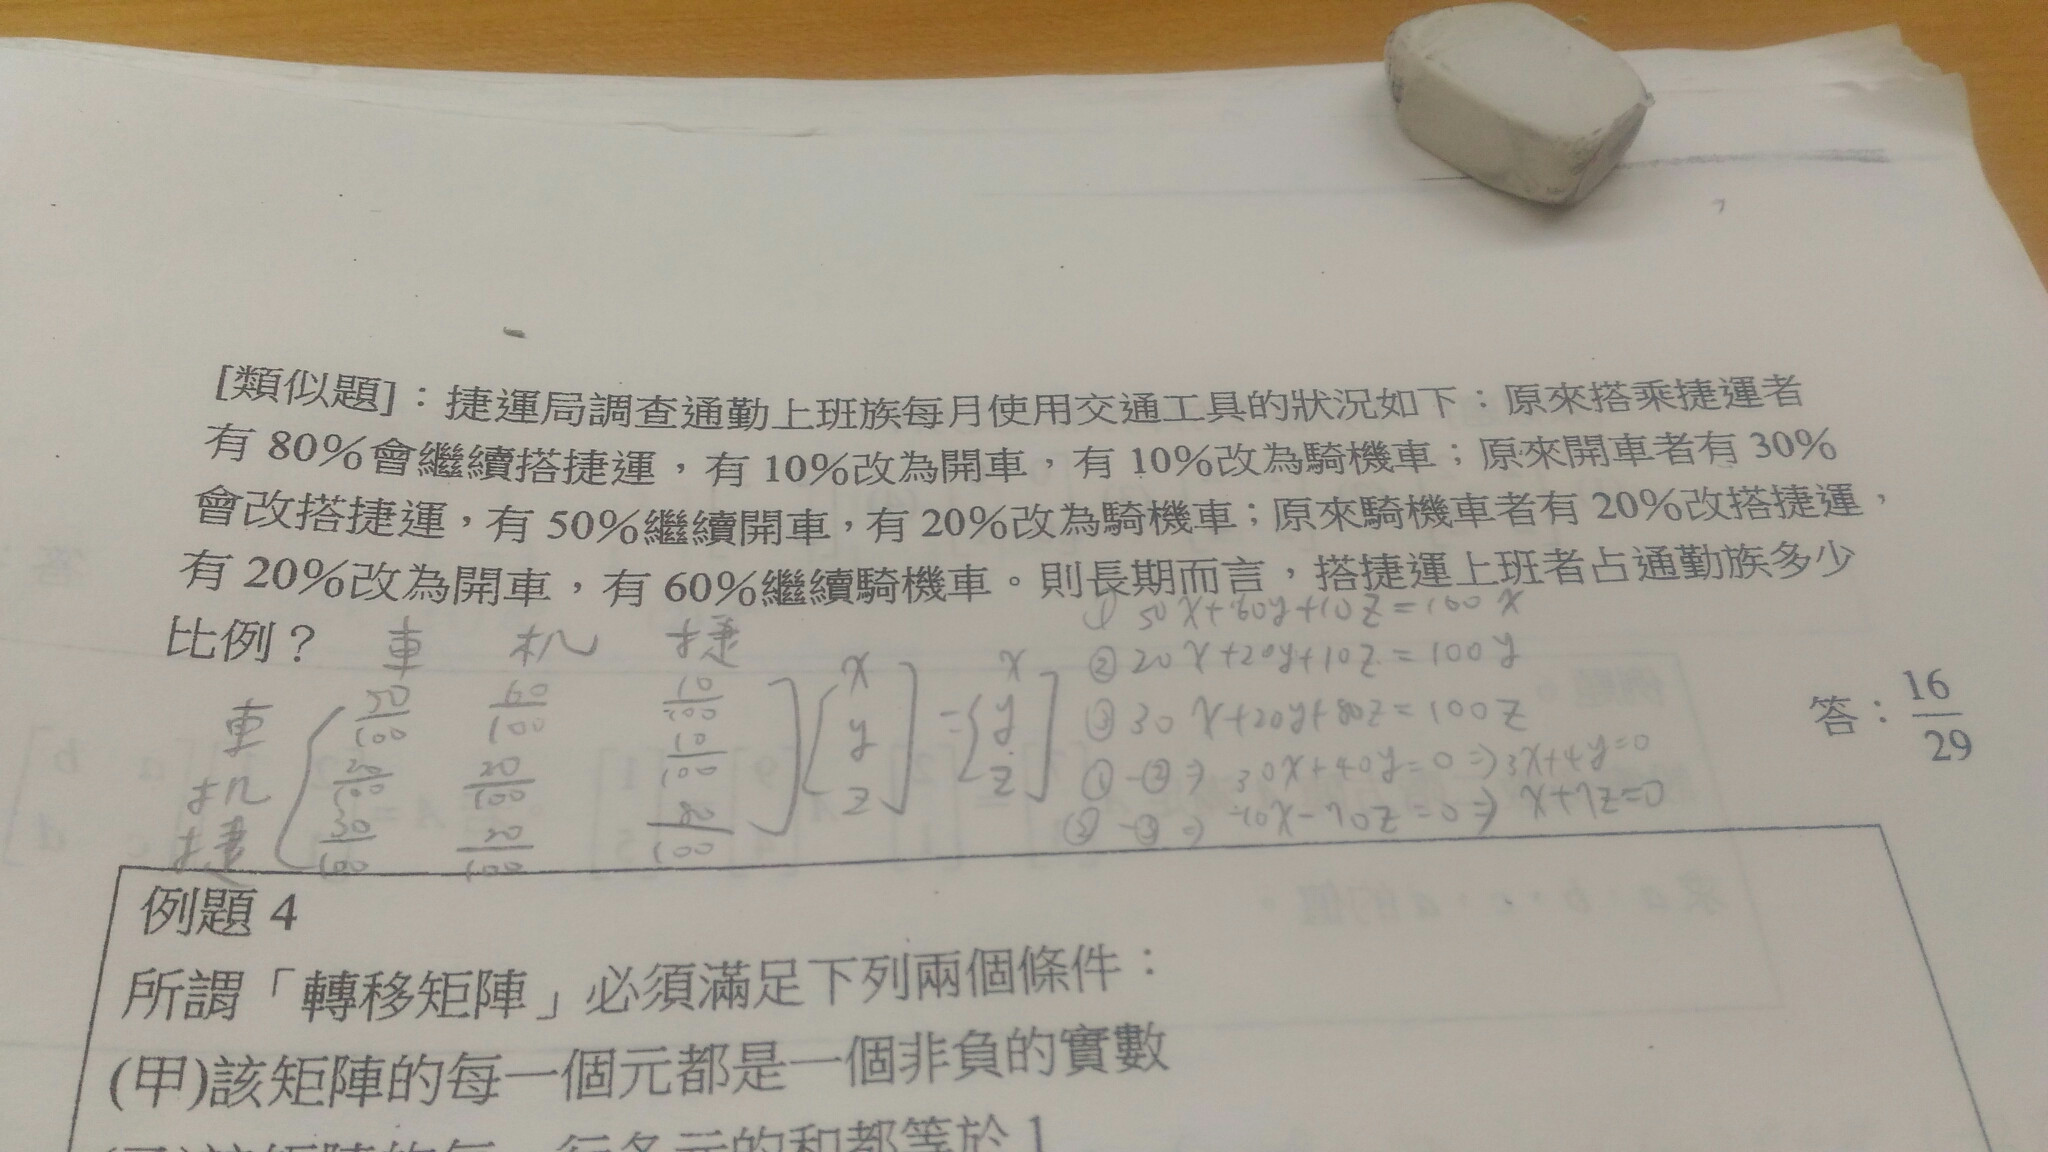 [類似題]：捷運局調查通勤上班族每月使用交通工具的狀況如下：原來搭乘捷運者
有 80%會繼續搭捷運，有 10%改為開車，有 10%改為騎機車；原來開車者有 30%
會改搭捷運，有 50%繼續開車，有 20%改為騎機車；原來騎機車者有 20%改搭捷運，
有 20%改為開車，有 60%繼續騎機車。則長期而言，搭捷運上班者占通勤族多少
比例？
車 机 捷
① 50X+60y+10Z=100X
② 20X+20y+10Z=100y
③ 30X+20y+80Z=100Z
車 50/100 60/100 10/100 X X
机 20/100 20/100 10/100 y = y
捷 30/100 20/100 80/100 Z Z
①-②⇒ 30X+40y=0 ⇒3X+4y=0
答：16/29
例題 4
所謂「轉移矩陣」必須滿足下列兩個條件：
(甲)該矩陣的每一個元都是一個非負的實數
該矩陣的每一行各元的和都等於 1